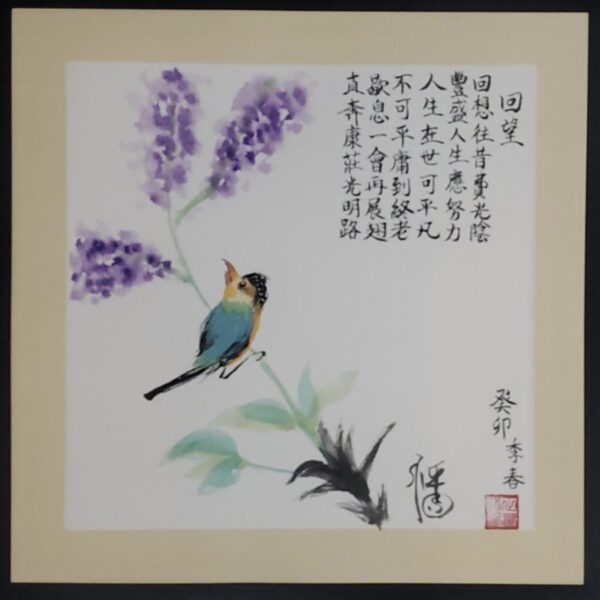 回望
回想往昔費光陰
豐盛人生應努力
人生在世可平凡
不可平庸到終老
歇息一會再展翅
直奔康莊光明路
癸卯季春